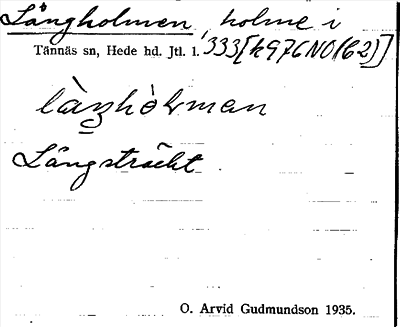 Långholmen, holme i
Tännäs sn, Hede hd. Jtl. l. 333 [k976NO(62)]
làŋhòlman
Långsträckt.
O. Arvid Gudmundson 1935.